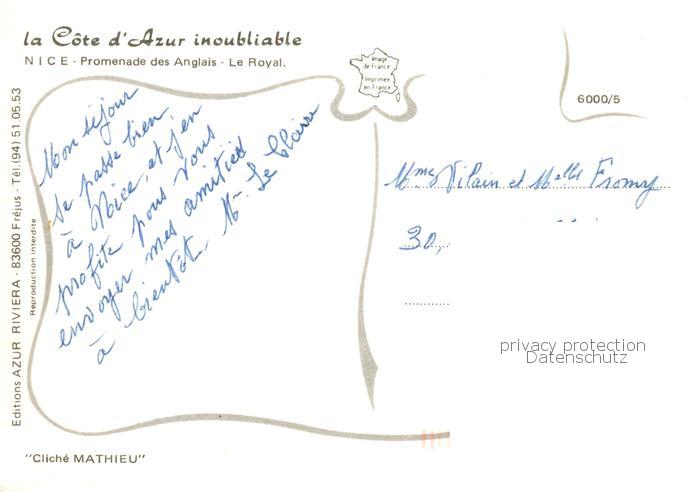 la Côte d'Azur inoubliable
NICE - Promenade des Anglais - Le Royal.
Image
de France
Imprimée
en France
6000/5
Mon séjour
se passe bien
à Nice, et j'en
profite pour vous
envoyer mes amitiés
à bientôt. Me Le
Mmes Vilain et Melle Fromy
30,
privacy protection
Datenschutz
Editions AZUR RIVIERA - 83600 Fréjus - Tél. (94) 51.05.53
Reproduction interdite
"Cliché MATHIEU"